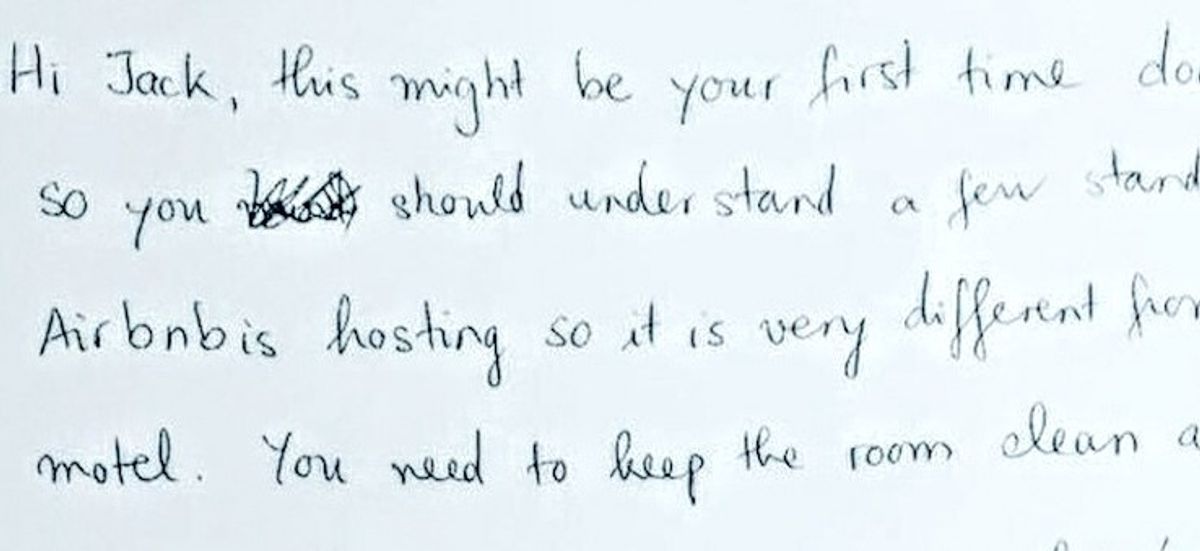 Hi Jack, this might be your first time
so you should understand a few
Airbnb is hosting so it is very different
motel. You need to keep the room clean